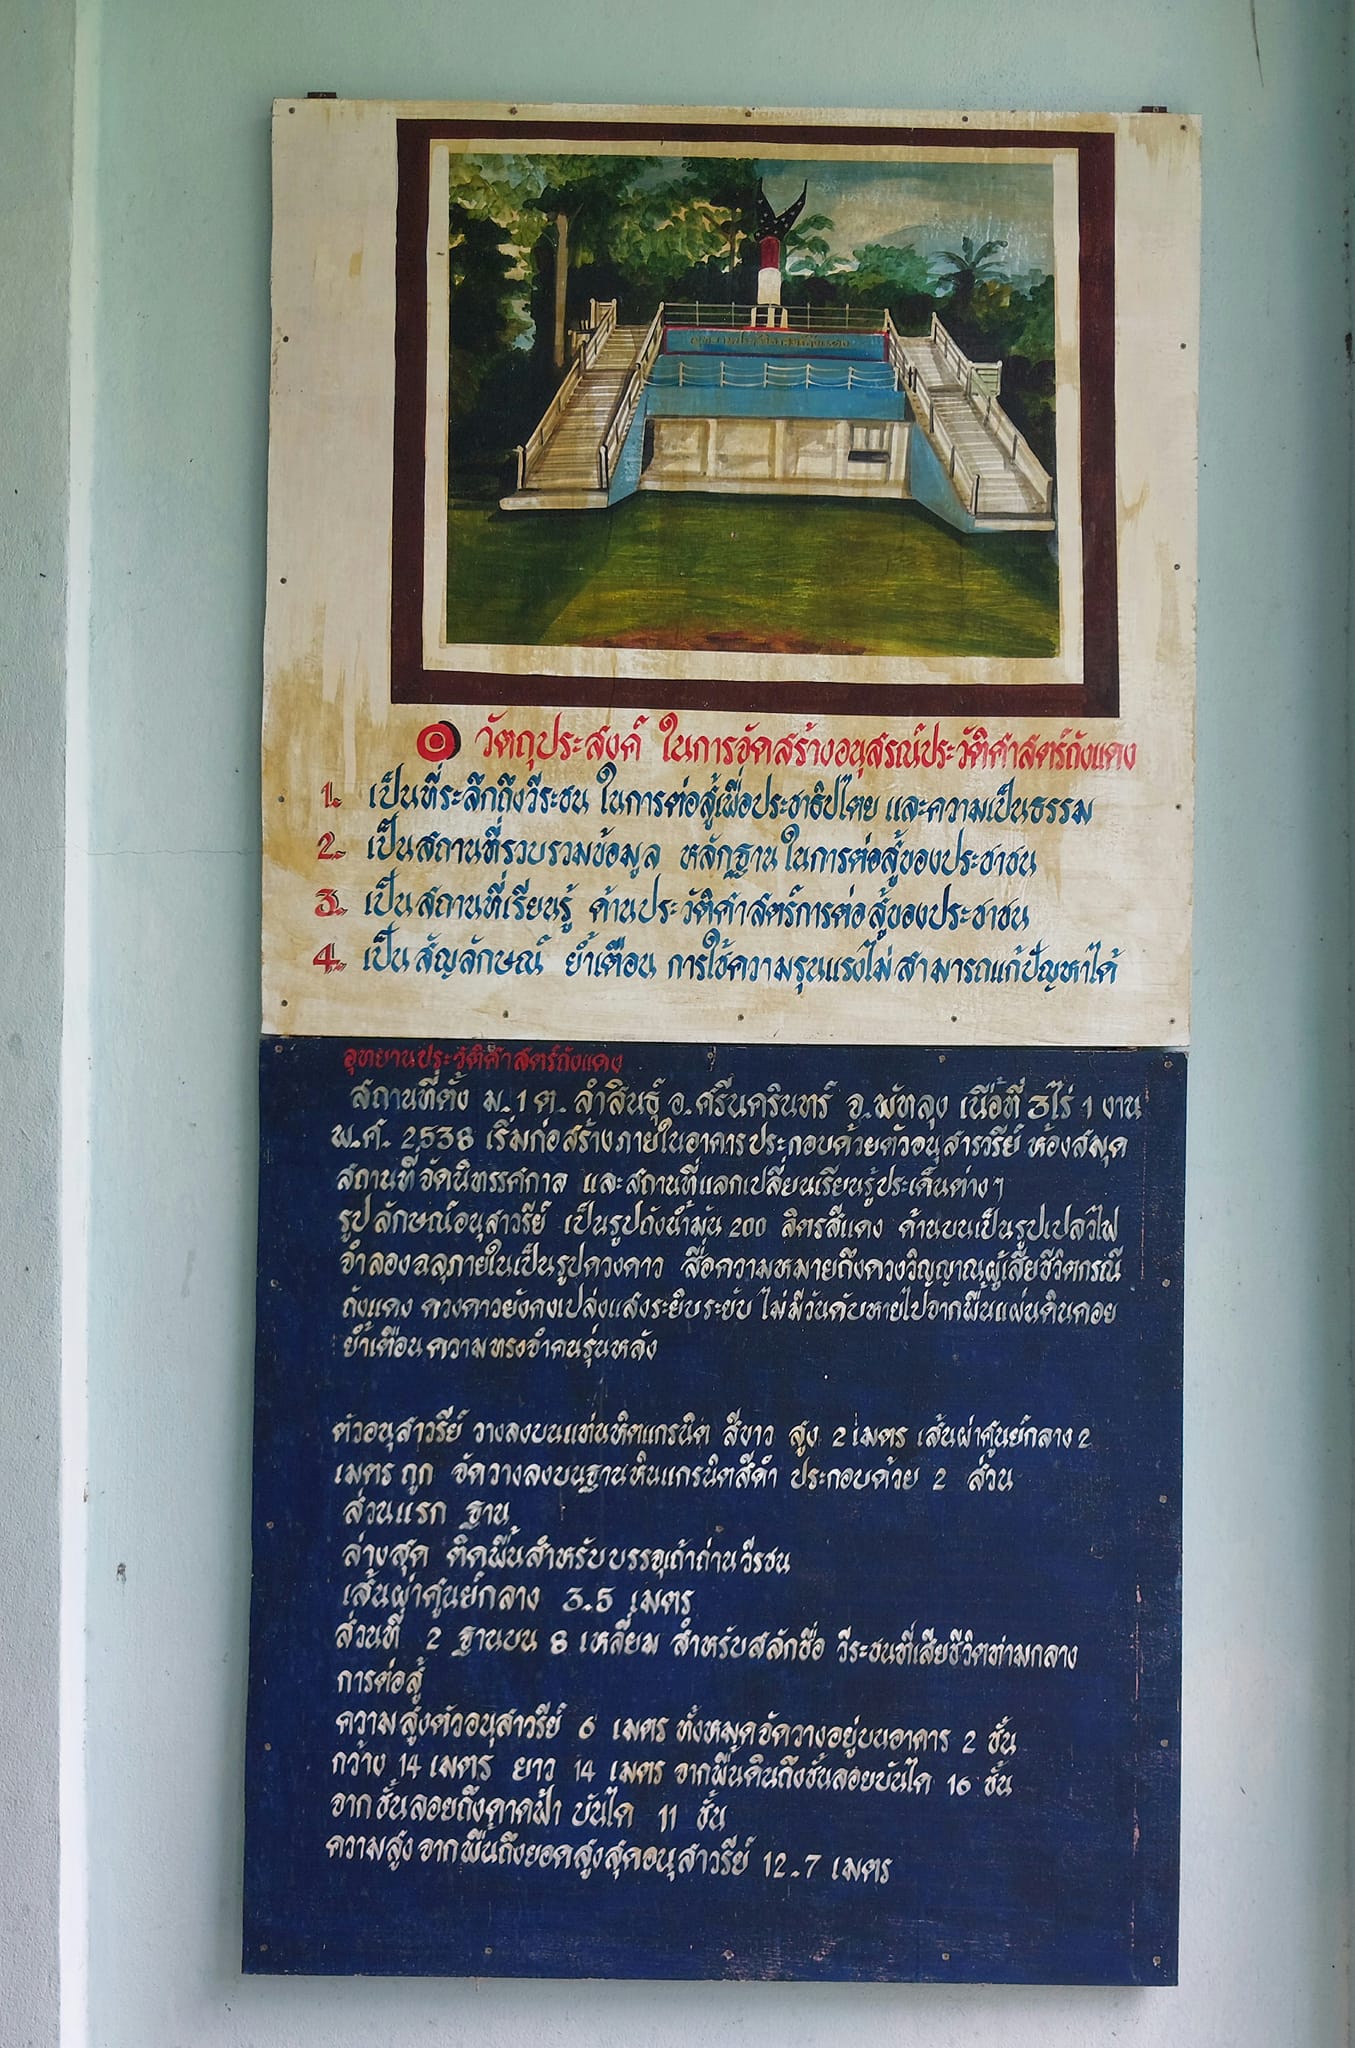 วัตถุประสงค์ ในการจัดสร้างอนุสรณ์ประวัติศาสตร์ถังแดง
1. เป็นที่ระลึกถึงวีระชน ในการต่อสู้เพื่อประชาธิปไตย และความเป็นธรรม
2. เป็นสถานที่รวบรวมข้อมูล หลักฐานในการต่อสู้ของประชาชน
3. เป็นสถานที่เรียนรู้ ด้านประวัติศาสตร์การต่อสู้ของประชาชน
4. เป็นสัญลักษณ์ ย้ำเตือน การใช้ความรุนแรงไม่สามารถแก้ปัญหาได้
อุทยานประวัติศาสตร์ถังแดง
สถานที่ตั้ง ม.1 ต. ลำสินธุ์ อ.ศรีนครินทร์ จ.พัทลุง เนื้อที่ 3ไร่ 1 งาน
พ.ศ. 2538 เริ่มก่อสร้างภายในอาคารประกอบด้วยตัวอนุสารวรีย์ ห้องสมุด
สถานที่จัดนิทรรศกาล และสถานที่แลกเปลี่ยนเรียนรู้ประเด็นต่างๆ
รูปลักษณ์อนุสาวรีย์ เป็นรูปถังน้ำมัน 200 ลิตรสีแดง ด้านบนเป็นรูปเปลวไฟ
จำลองฉลุภายในเป็นรูปดวงดาว สื่อความหมายถึงดวงวิญญาณผู้เสียชีวิตกรณี
ถังแดง ดวงดาวยังคงเปล่งแสงระยิบระยับ ไม่มีวันดับหายไปจากพื้นแผ่นดินคอย
ย้ำเตือนความทรงจำคนรุ่นหลัง
ตัวอนุสาวรีย์ วางลงบนแท่นหิตแกรนิต สีขาว สูง 2 เมตร เส้นผ่าศูนย์กลาง 2
เมตร ถูก จัดวางลงบนฐานหินแกรนิตสีดำ ประกอบด้วย 2 ส่วน
ส่วนแรก ฐาน
ล่างสุด ติดพื้นสำหรับบรรจุเถ้าถ่านวีรชน
เส้นผ่าศูนย์กลาง 3.5 เมตร
ส่วนที่ 2 ฐานบน 8 เหลี่ยม สำหรับสลักชื่อ วีระชนที่เสียชีวิตท่ามกลาง
การต่อสู้
ความสูงตัวอนุสาวรีย์ 6 เมตร ทั้งหมดจัดวางอยู่บนอาคาร 2 ชั้น
กว้าง 14 เมตร ยาว 14 เมตร จากพื้นดินถึงชั้นลอยบันได 16 ชั้น
จากชั้นลอยถึงดาดฟ้า บันได 11 ชั้น
ความสูงจากพื้นถึงยอดสูงสุดอนุสาวรีย์ 12.7 เมตร